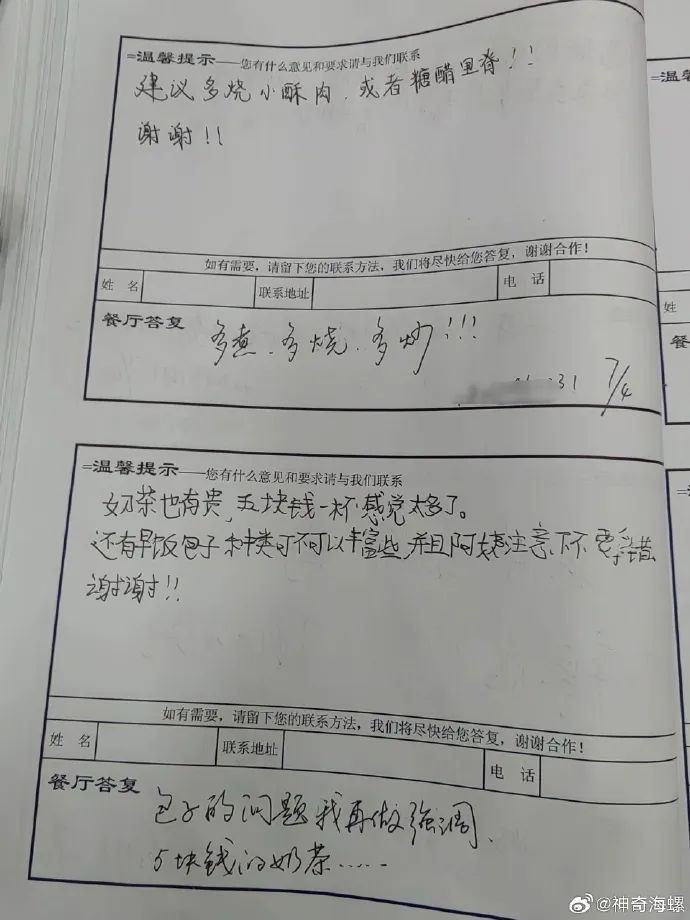 =温馨提示——您有什么意见和要求请与我们联系
建议多烧小酥肉、或者糖醋里脊!!
谢谢!!
如有需要，请留下您的联系方法，我们将尽快给您答复，谢谢合作！
姓 名 联系地址 电 话
餐厅答复
多煮、多烧、多炒!!!
31 7/4
=温馨提示——您有什么意见和要求请与我们联系
奶茶也有贵,五块钱一杯感觉太多了。
还有早饭包子种类可不可以丰富些,并且阿姨注意下不要拿错
谢谢!!
如有需要，请留下您的联系方法，我们将尽快给您答复，谢谢合作！
姓 名 联系地址 电 话
餐厅答复
包子的问题我再做强调、
5块钱的奶茶……
=温馨
姓
餐
=温
姓
@神奇海螺